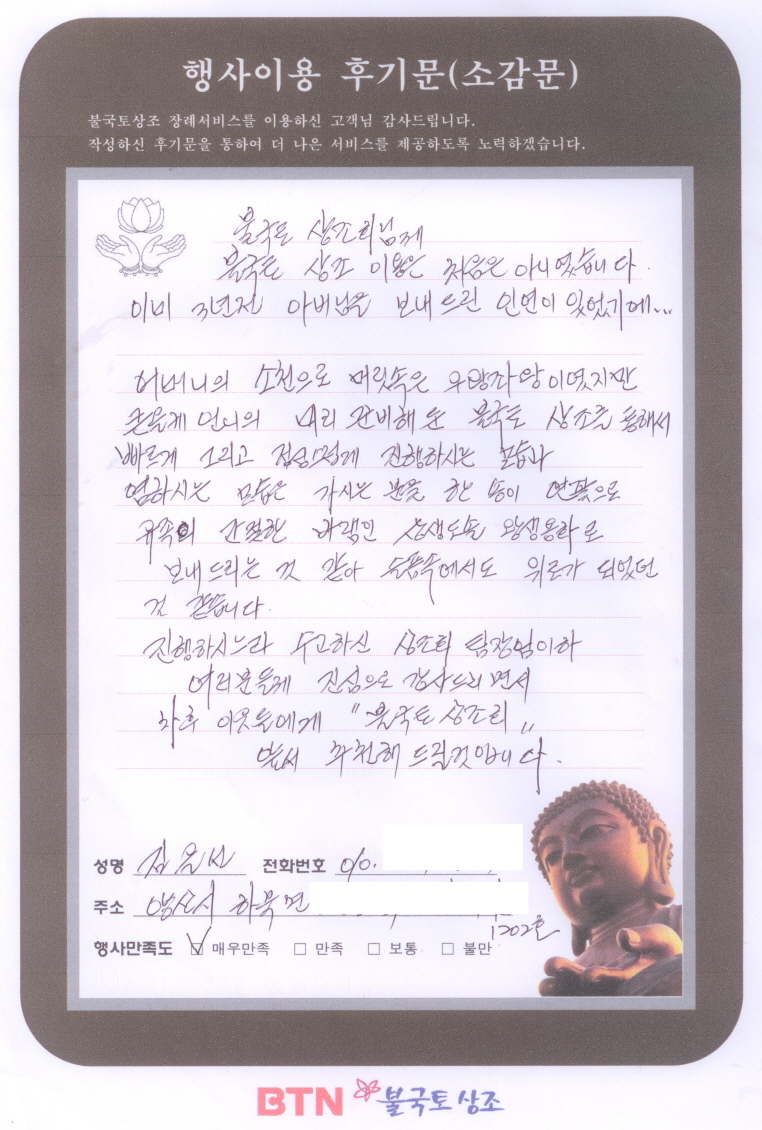 행사이용 후기문(소감문)
불국토상조 장례서비스를 이용하신 고객님 감사드립니다.
작성하신 후기문을 통하여 더 나은 서비스를 제공하도록 노력하겠습니다.
불국토 상조회님께
불국토 상조 이용은 처음은 아니였습니다.
이미 3년전 아버님을 보내드린 인연이 있었기에...
어머니의 소천으로 머릿속은 우왕좌왕이였지만
큰올케언니의 미리 준비해둔 불국토 상조를 통해서
빠르게 그리고 정성스럽게 진행하시는 모습과
염하시는 모습은 가시는 분을 한 송이 연꽃으로
유족의 간절한 바램인 상생도솔 왕생용화로
보내드리는 것 같아 슬픔속에서도 위로가 되었던
것 같습니다.
진행하시느라 수고하신 상조회 팀장님이하
여러분들께 진심으로 감사드리면서
차후 이웃들에게 "불국토 상조회"
앞서 추천해 드릴것입니다.
성명 김은선 전화번호 010.
주소 양산시 하북면
1202호
행사만족도 ☑ 매우만족 □ 만족 □ 보통 □ 불만
BTN 불국토상조